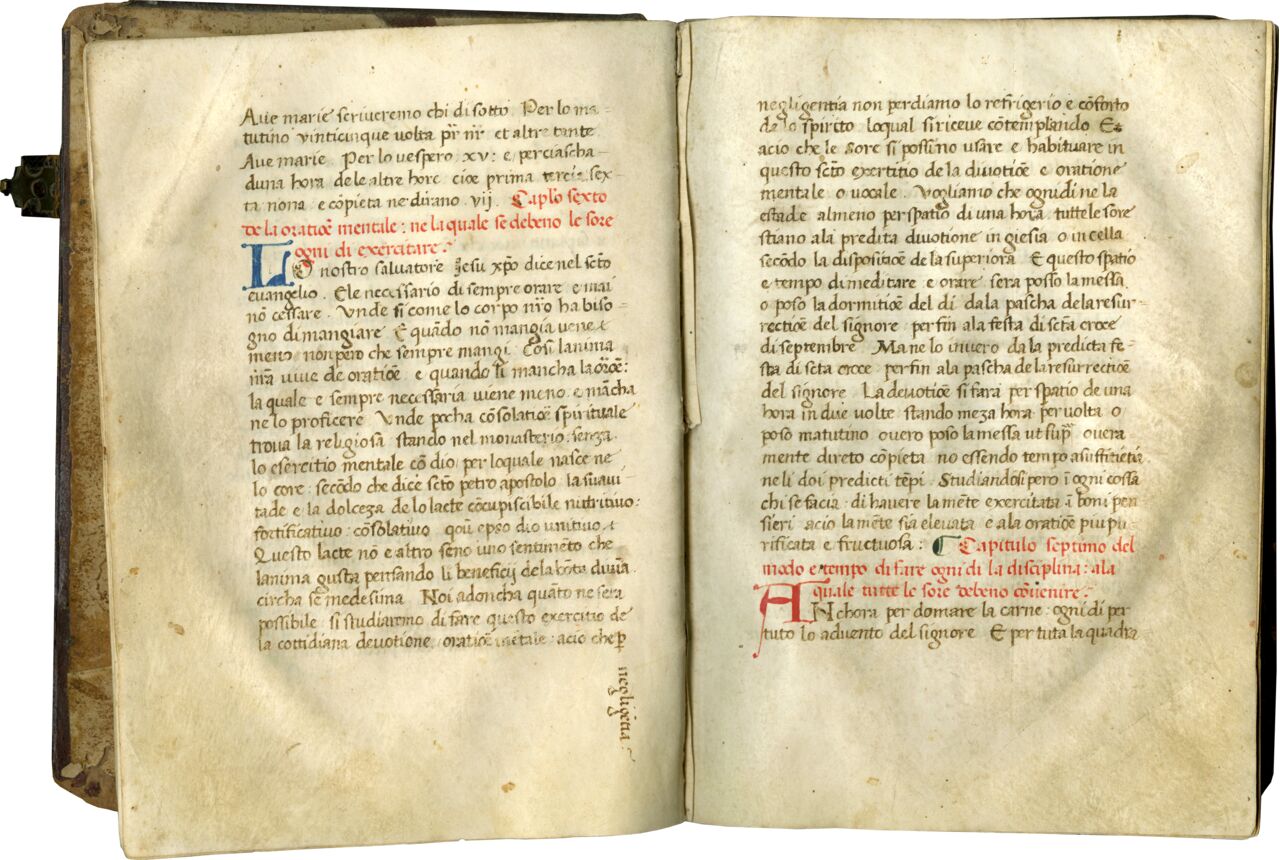 Aue marie scriueremo chi di sotto. Per lo ma=
tutino vinticinque volta pr̄ nr̄ et altre tante
Aue marie. Per lo vespero. xv: e perciascha=
duna hora dele altre hore cioe prima tercia sex=
ta nona e cōpieta ne dirano. vij. Caplo sexto
de la oratiōe mentale: ne la quale se debeno le sore
ogni di exercitare.
LO nostro saluatore Jesu xp̄o dice nel sctō
euangelio. Ele necessario di sempre orare e mai
nō cessare. Vnde si come lo corpo nr̄o ha biso=
gno di mangiare E quādo nō mangia uene t
meno non pero che sempre mangi. Cosi lanima
nr̄a viue de oratiōe e quando li mancha la orōe:
la quale e sempre necessaria uiene meno e mācha
ne lo proficere Vnde pocha cōsolatiōe spirituale
troua la religiosa stando nel monasterio: senza
lo esercitio mentale cō dio: per loquale nasce ne
lo core: secōdo che dice sctō petro apostolo la suaui=
tade e la dolceza de lo lacte cōcupiscibile nutritiuo:
fortificatiuo: cōsolatiuo dio vnitiuo. t
Questo lacte nō e altro seno uno sentimēto che
lanima gusta pensando li beneficij de la bōta diuīa
circha se medesima Noi adoncha quāto ne sera
possibile si studiaremo di fare questo exercitio de
la cottidiana deuotione: oratiōe mētale: acio che p̲
negligētia:
negligentia non perdiamo lo refrigerio e cōforto
de lo spirito loqual si riceue cōtemplando E
acio che le sore si possino usare e habituare in
questo sctō exertitio de la diuotiōe e oratione
mentale o uocale. Vogliamo che ogni di ne la
estade almeno per spatio di una hora tutte le sore
stiano ala predita diuotione in giesia o in cella
secōdo la dispositiōe de la superiora E questo spatio
e tempo di meditare e orare sera posso la messa
o poso la dormitiōe del di da la pascha de la resur=
rectiōe del signore per fin ala festa di sctā croce
di septembre Ma ne lo inuero da la predicta fe=
sta di sctā croce per fin ala pascha de la resurrectiōe
del signore La deuotiōe si fara per spatio de una
hora in due volte stando meza hora per volta o
poso matutino ouero poso la messa ut sup̄ ouera
mente direto cōpieta no essendo tempo a sufficietia
ne li doi predicti tēpi. Studiandosi pero ī ogni cossa
chi se facia: di hauere la mēte exercitata ī boni pen
sieri acio la mēte sia eleuata e ala oratiōe piu pu
rificata e fructuosa: Capitulo septimo del
modo e tempo di fare ogni di la disciplina: ala
quale tutte le sore debeno cōuenire.
ANchora per domare la carne: ogni di per
tuto lo aduento del signore E per tuta la quadra